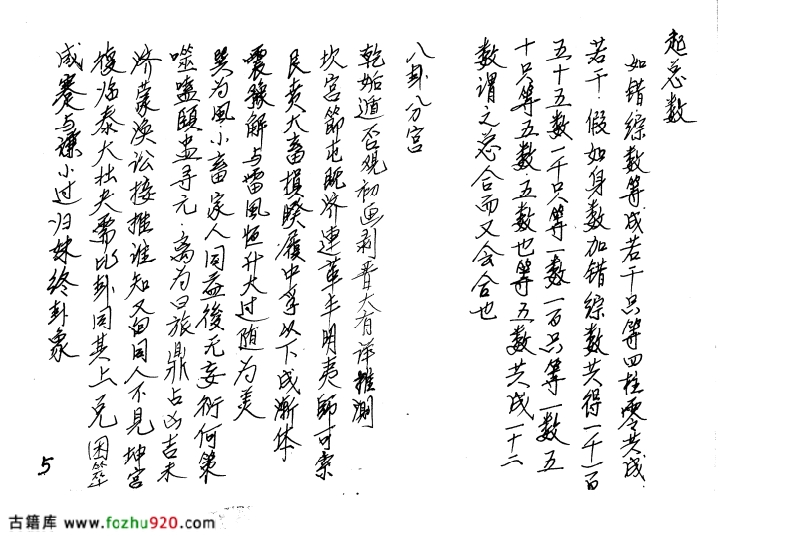 起总数
如错综数算成若干只算四柱零共成
若干假如身数加错综数共得一千一百
五十五数一千只算一数一百只算一数五
十只算五数五数也算五数共成一十二
数谓之总合而又会合也
八卦分宫
乾姤遁否观初画剥晋大有详推测
坎宫節屯既济连革丰明夷師可索
艮贲大畜損睽履中孚以下成漸体
震豫解与雷風恒升大过随为美
巽为風小畜家人同益後无妄衍何策
噬嗑頤蛊寻元离为日旅鼎占凶吉未
济蒙涣訟接推谁知又向同人不見坤宫
復临泰大壮夬需比卦同其上兑困萃
咸蹇与谦小过归妹终卦象
5
古籍库 www.fozhu920.com